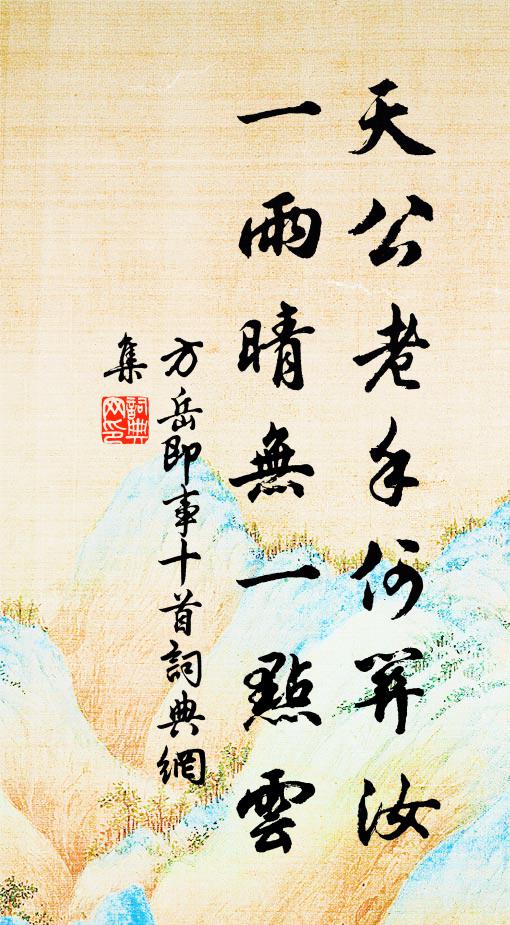 天公老手何關汝
一雨晴無一點雲
方岳即事十首詞典網
集
詞典
網印